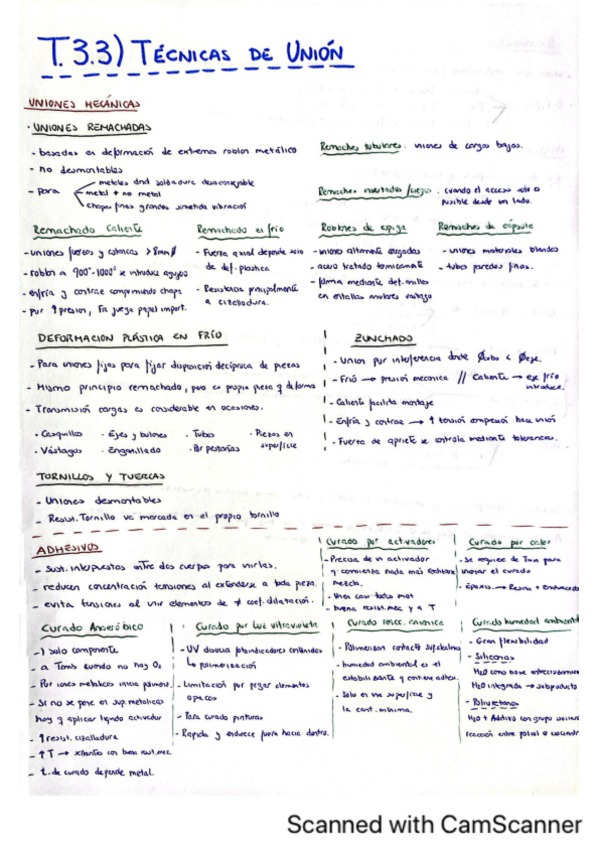 T.3.3) TÉCNICAS DE UNIÓN
UNIONES MECÁNICAS
· UNIONES REMACHADAS
- basadas en deformación de extremos roblon metálico
- no desmontables
- para
metales dnd soldadura desaconsejable
metal + no metal
chapas finas grandes sometida vibración
Remaches tubulares: uniones de cargas bajas.
Remaches cuando el acceso solo es posible desde un lado.
Remachado Caliente
- uniones fuertes y estancas > 8mm Ø
- roblon a 900°-1000° se introduce agujero
- enfría y contrae comprimiendo chapa
- por ↑ presion, Fr juega papel import.
Remachado en frío
- Fuerza axial depende solo
de def. plastica
- Resistencia principalmente
a cizalladura.
Roblones de espiga
- uniones altamente cargadas
- acero tratado termicamente
- forma mediante def. anillos
en entallas
Remaches de cápsula
- uniones materiales blandos
- tubo paredes finas.
DEFORMACION PLÁSTICA EN FRÍO
- Para uniones fijas para fijar disposición recíproca de piezas
- Mismo principio remachado, pero es propia pieza q deforma
- Transmisión cargas es considerable en ocasiones.
· Casquillos · Ejes y bulones · Tubos · Piezas en superficie
· Vástagos · Engarillado · Por pestañas
ZUNCHADO
- Union por interferencia donde Øcubo < Øeje.
- Frío → presion mecanica // Caliente → eje frío
introduce.
- Caliente facilita montaje
- Enfría y contrae → ↑ tensión compresion hace unión
- Fuerza de apriete se controla mediante tolerancias.
TORNILLOS Y TUERCAS
- Uniones desmontables
- Resist. Tornillo va marcada en el propio tornillo
ADHESIVOS
- Sust. interpuestas entre dos cuerpos para unirlas.
- reducen concentración tensiones al extenderse a toda pieza.
- evita tensiones al unir elementos de ≠ coef. dilatación.
Curado por activadores
- Precisa de un activador
y comienza nada más realizar
mezcla.
- Unen casi todos mat
- buena resist. mec y a T
Curado por calor
- se requiere de Tmin para
iniciar el curado
- Epoxis → Resina + Endurecedor
Curado Anaeróbico
- 1 solo componente
- a Tamb cuando no hay O₂
- Por iones metalicos inicia polimeriz.
- Si no se pone en sup. metalicas
hay q aplicar liquido activador
- ↑ resist. cizalladura
- ↑T → sellantes con buena resist. mec.
- t. de curado depende metal.
Curado por Luz ultravioleta
- UV disocia fotoiniciadores contenidos
↳ polimerización
- Limitación por pegar elementos
opacos
- Para curado pinturas
- Rapida y endurece fuera hacia dentro.
Curado reacc. anionica
- Polimerizan contacto sup. alcalina
- humedad ambiental es el
estabilizante y contiene adhes.
- Solo en una superficie y
la cant. minima.
Curado humedad ambiental
- Gran flexibilidad
- Siliconas
H₂O como base entrecruzamiento
H₂O integrada → subproducto
- Poliuretanos
H₂O + Aditivo con grupo
reacción entre poliol e isocianato
Scanned with CamScanner